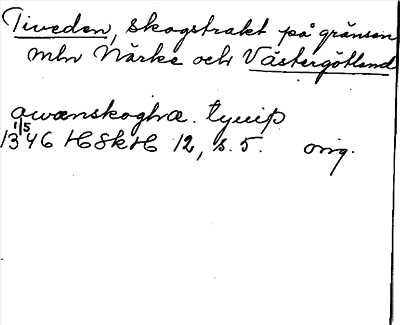 Tiveden, skogstrakt på gränsen
mln Närke och Västergötland
owænskoghæ. tyuiþ
1/5
1346 HSkH 12, s. 5. orig.